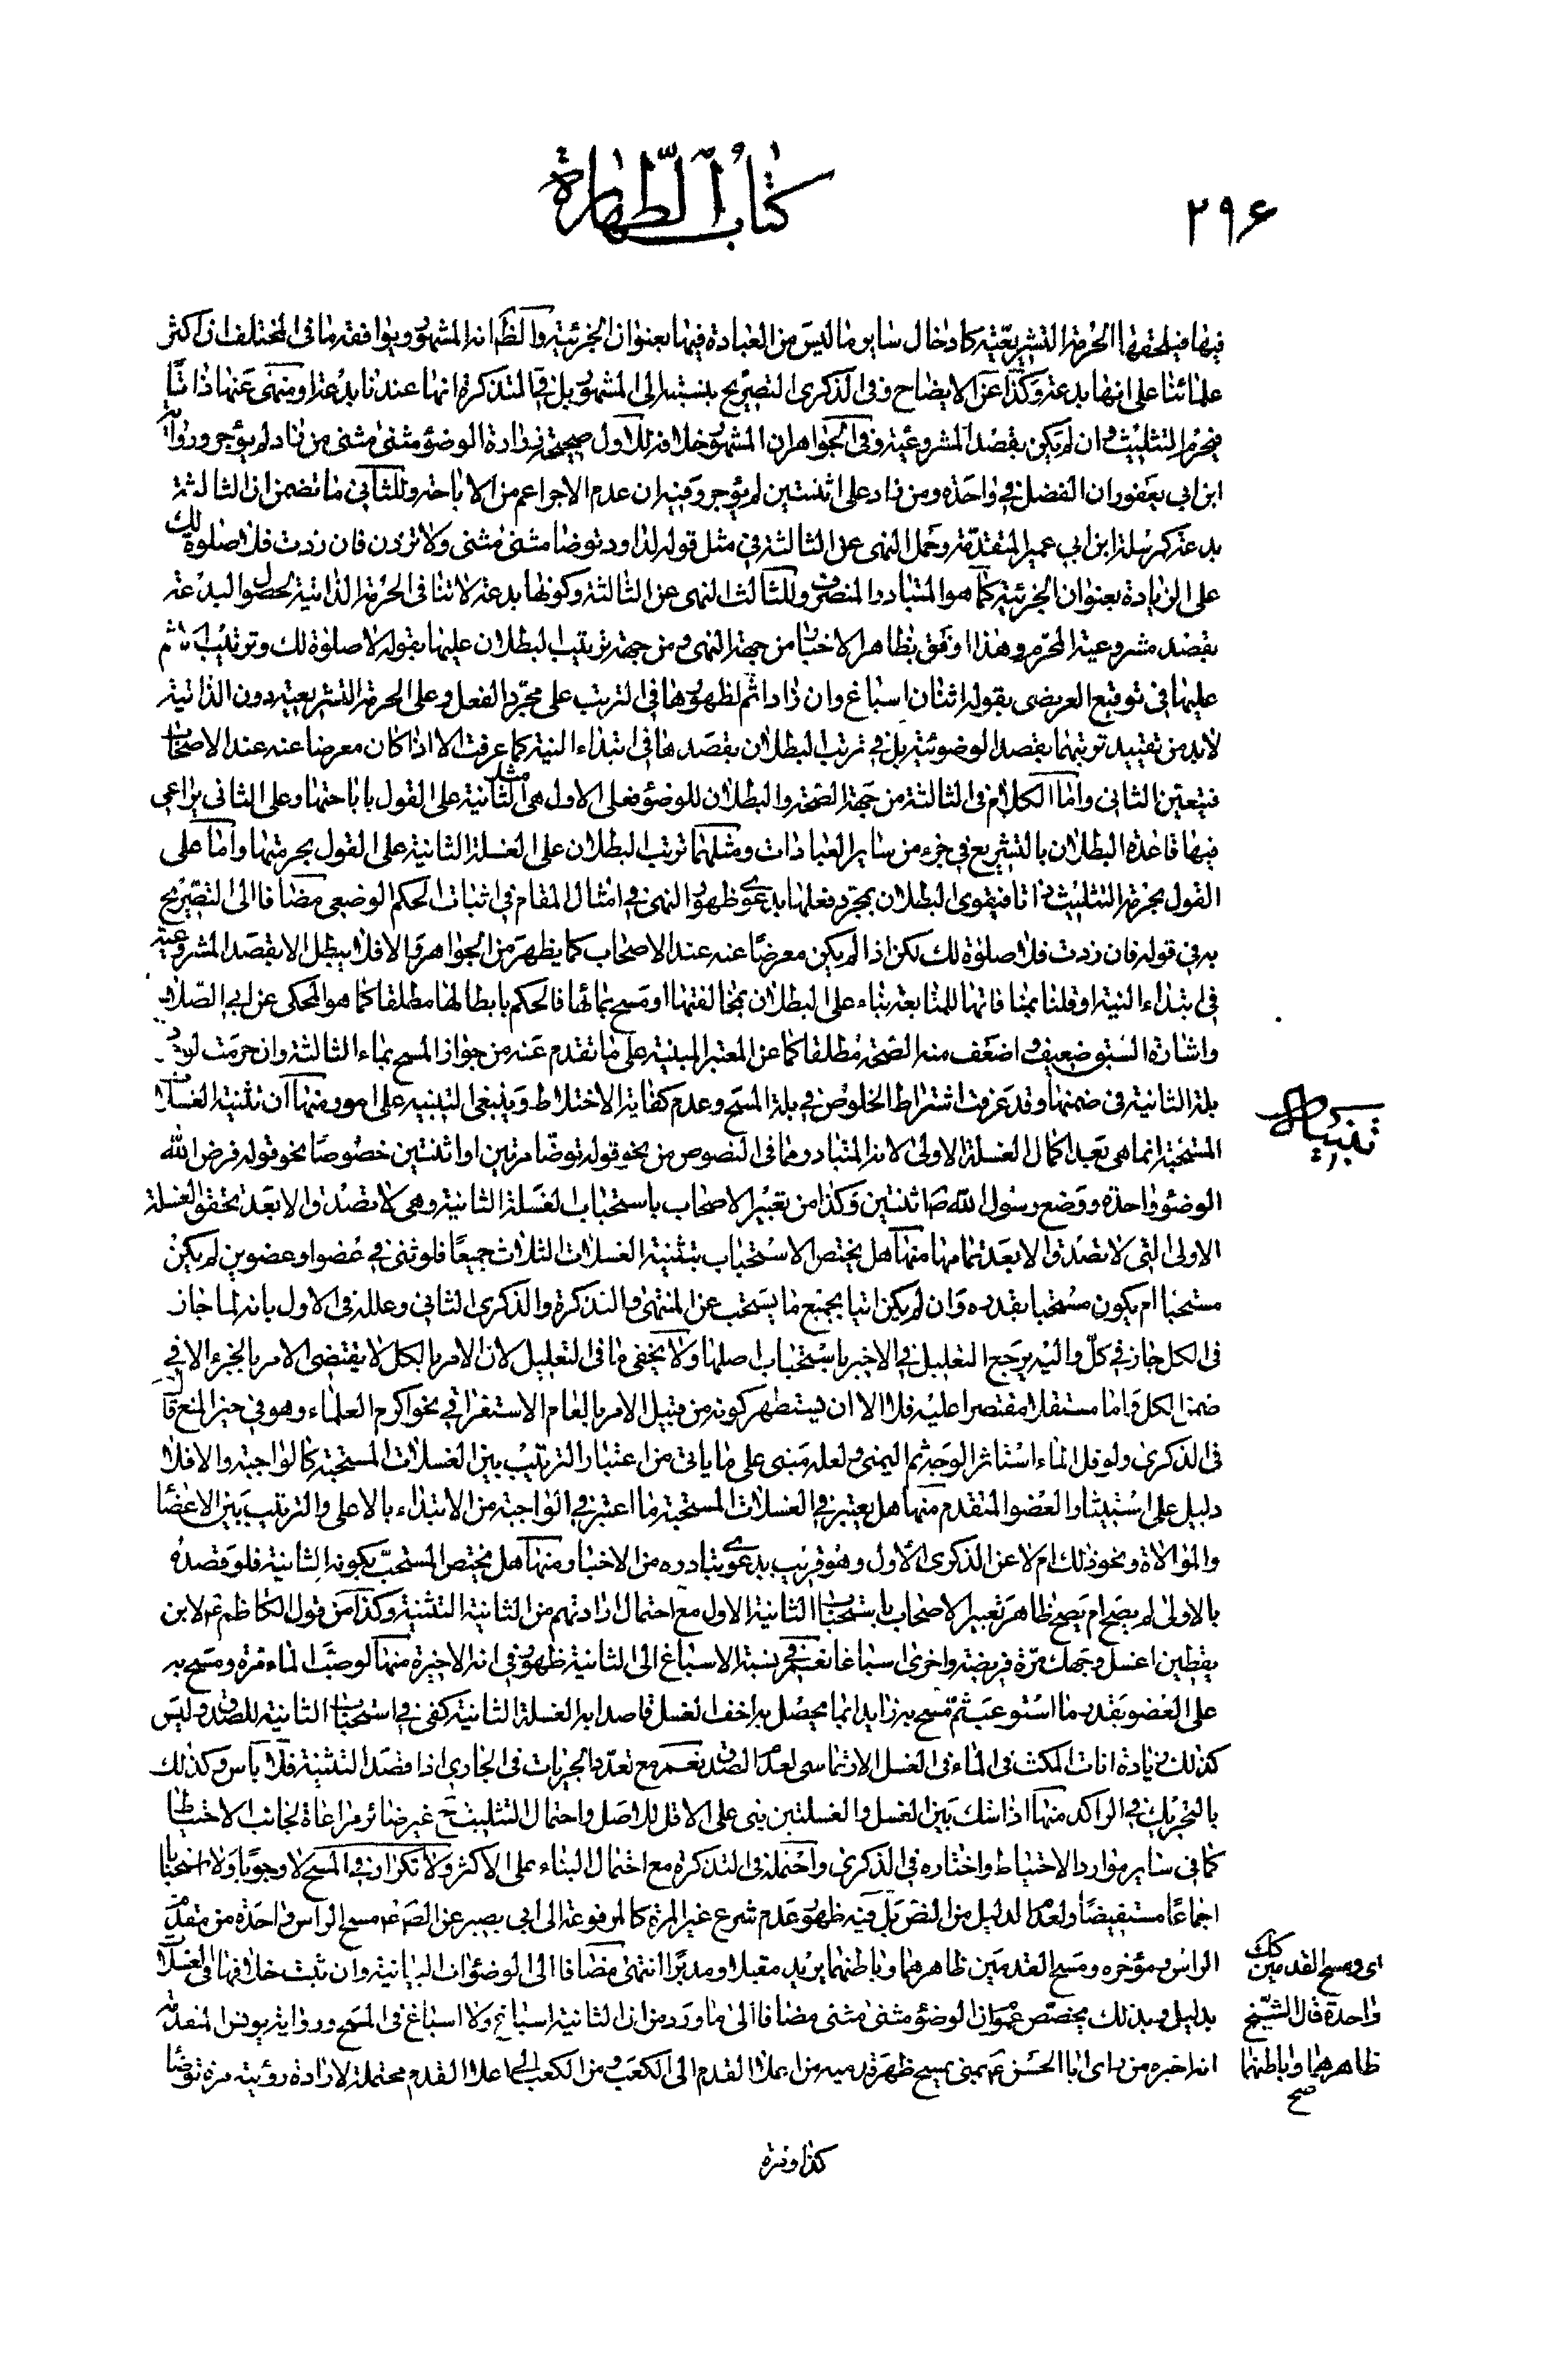 ۲۹۶
كتاب الطهارة
فيها فيلحقها الحرمة التشريعيّة كادخال ساير ما ليس من العبادة فيها بعنوان الجزئية والظ انه المشهور ويوافقه ما في المختلف ان اكثر
علمائنا على انها بدعة وكذا عن الايضاح وفي الذكرى التصريح بنسبته الى المشهور بل في التذكرة انها عندنا بدعة او منهى عنها ذاتا
فيحرم التثليث وان لم يكن بقصد المشروعية وفي الجواهر ان المشهور خلافه للاول صحيحة زرارة الوضوء مثنى مثنى من زاد لم يؤجر ورواية
ابن ابي يعفور ان الفضل في واحدة ومن زاد على اثنتين لم يؤجر وفيه ان عدم الاجر اعم من الاباحة وللثاني ما تضمن ان الثالثة
بدعة كمرسلة ابن ابي عمير المتقدمة وحمل النهى عن الثالثة في مثل قوله لداود توضا مثنى مثنى ولا تزدن فان زدت فلا صلوة لك
على الزيادة بعنوان الجزئية كما هو المتبادر المنصرف وللثالث النهى عن الثالثة وكونها بدعة لا تنافي الحرمة الذاتية لحصول البدعة
بقصد مشروعية المحرم وهذا اوفق بظاهر الاخبار من جهة النهى ومن جهة ترتيب البطلان عليها بقوله لا صلوة لك وترتيب الاثم
عليها في توقيع العريضى بقوله اثنان اسباغ وان زاد اثم لظهورها في الترتب على مجرد الفعل وعلى الحرمة التشريعية دون الذاتية
لابد من تقييد ترتبهما بقصد الوضوئية بل في ترتب البطلان بقصدها في ابتداء النية كما عرفت الا اذا كان معرضا عنه عند الاصحاب
فيتعين الثاني واما الكلام في الثالثة من جهة الصحة والبطلان للوضوء فعلى الاول هي مثل الثانية على القول باباحتها وعلى الثاني يراعى
فيها قاعدة البطلان بالتشريع في جزء من ساير العبادات ومثلها ترتب البطلان على الغسلة الثانية على القول بحرمتها واما على
القول بحرمة التثليث ذاتا فيقوى البطلان بمجرد فعلها بدعوى ظهور النهى في امثال المقام في اثبات الحكم الوضعى مضافا الى التصريح
به في قوله فان زدت فلا صلوة لك لكن اذا لم يكن معرضا عنه عند الاصحاب كما يظهر من الجواهر والا فلا يبطل الا بقصد المشروعية
في ابتداء النية او قلنا بمنافاتها للمتابعة بناء على البطلان بمخالفتها او مسح بمائها فالحكم بابطالها مطلقا كما هو المحكى عن ابي الصلاح
واشارة السبق ضعيف واضعف منه الصحة مطلقا كما عن المعتبر المبنية على ما تقدم عنه من جواز المسح بماء الثالثة وان حرمت لوجود
بلة الثانية في ضمنها وقد عرفت اشتراط الخلوص في بلة المسح وعدم كفاية الاختلاط وينبغى التنبيه على امور منها ان تثنية الغسلات
تنبيهات
المستحبة انما هي بعد اكمال الغسلة الاولى لانه المتبادر مما في النصوص من نحو قوله توضا مرتين او اثنتين خصوصا نحو قوله فرض الله
الوضوء واحدة ووضع رسول الله ص اثنتين وكذا من تعبير الاصحاب باستحباب الغسلة الثانية وهي لا تصدق الا بعد تحقق الغسلة
الاولى التى لا تصدق الا بعد تمامها منها هل يختص الاستحباب بتثنية الغسلات الثلاث جميعا فلو ثنى في عضو او عضوين لم يكن
مستحبا ام يكون مستحبا بقدره وان لم يكن اتيا بجميع ما يستحب عن المنتهى والتذكرة والذكرى الثاني وعلله في الاول بانه لما جاز
في الكل جاز في كل واليه يرجع التعليل في الاخير باستحباب اصلها ولا يخفى ما في التعليل لان الامر بالكل لا يقتضى الامر بالجزء الا في
ضمن الكل واما مستقلا مقتصرا عليه فلا الا ان يستظهر كونه من قبيل الامر بالعام الاستغراقي نحو اكرم العلماء وهو في حيز المنع قال
في الذكرى ولو قل الماء استاثر الوجه ثم اليمنى ولعله مبنى على ما ياتى من اعتبار الترتيب بين الغسلات المستحبة كالواجبة والا فلا
دليل على استيثار العضو المتقدم منها هل يعتبر في الغسلات المستحبة ما اعتبر في الواجبة من الابتداء بالاعلى والترتيب بين الاعضاء
والموالاة ونحو ذلك ام لا عن الذكرى الاول وهو قريب بدعوى تبادره من الاخبار ومنها هل يختص المستحب بكونه الثانية فلو قصده
بالاولى لم يصح ام يصح ظاهر تعبير الاصحاب باستحباب الثانية الاول مع احتمال ارادتهم من الثانية التثنية وكذا من قول الكاظم ع لابن
يقطين اغسل وجهك مرة فريضة واخرى اسباغا نعم في نسبة الاسباغ الى الثانية ظهور في انه الاخيرة منها لو صب الماء مرة ومسح به
على العضو بقدر ما استوعبه ثم مسح به زايدا بما يحصل به اخف الغسل قاصدا به الغسلة الثانية كفى في استحباب الثانية للصدق وليس
كذلك زيادة انات المكث في الماء في الغسل الارتماسى لعدم الصدق نعم مع تعدد الجريات في الجاري اذا قصد التثنية فلا بأس وكذلك
بالتحريك في الراكد منها اذا شك بين الغسل والغسلتين بنى على الاقل للاصل واحتمال التثليث ح غير ضائر مراعاة لجانب الاحتياط
كما في ساير موارد الاحتياط واختاره في الذكرى واحتمله في التذكرة مع احتمال البناء على الاكثر ولا تكرار في المسح لا وجوبا ولا استحبابا
اجماعا مستفيضا ولعدم الدليل من النص بل فيه ظهور عدم شرع غير المرة كالمرفوعة الى ابي بصير عن الص ع مسح الراس واحدة من مقدم
الراس ومؤخره ومسح القدمين ظاهرهما وباطنهما يريد مقبلا ومدبرا انتهى مضافا الى الوضوءات البيانية وان ثبت خلافها في الغسلات
بدليل وبذلك يخصص عموم ان الوضوء مثنى مثنى مضافا الى ما ورد من ان الثانية اسباغ ولا اسباغ في المسح ورواية يونس المتقدمة
انه اخبره من راى ابا الحسن ع بمنى يمسح ظهر قدميه من اعلا القدم الى الكعب ومن الكعب الى اعلا القدم محتملة لارادة رؤيته مرة توضا
اي ومسح القدمين كك
واحدة قال الشيخ
ظاهرهما وباطنهما
صح
كذا ومرة